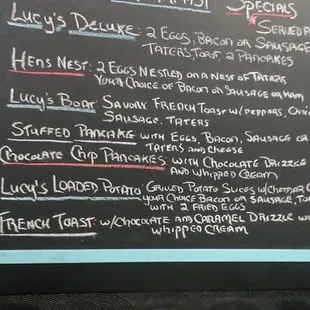 Specials
Lucy's Deluxe: 2 Eggs, Bacon or Sausage
Taters, Toast, 2 Pancakes
Hens Nest: 2 Eggs Nestled on a Nest of Taters
Your Choice of Bacon or Sausage or Ham
Lucy's Boat: Savory French Toast w/ Peppers,
Sausage, Taters
Stuffed Pancake with Eggs, Bacon, Sausage or
Taters and Cheese
Chocolate Chip Pancakes: with Chocolate Drizzle
and Whipped Cream
Lucy's Loaded Potato: Grilled Potato Slices w/
your Choice Bacon or Sausage,
with 2 Fried Eggs
French Toast: w/ Chocolate and Caramel Drizzle
Whipped Cream